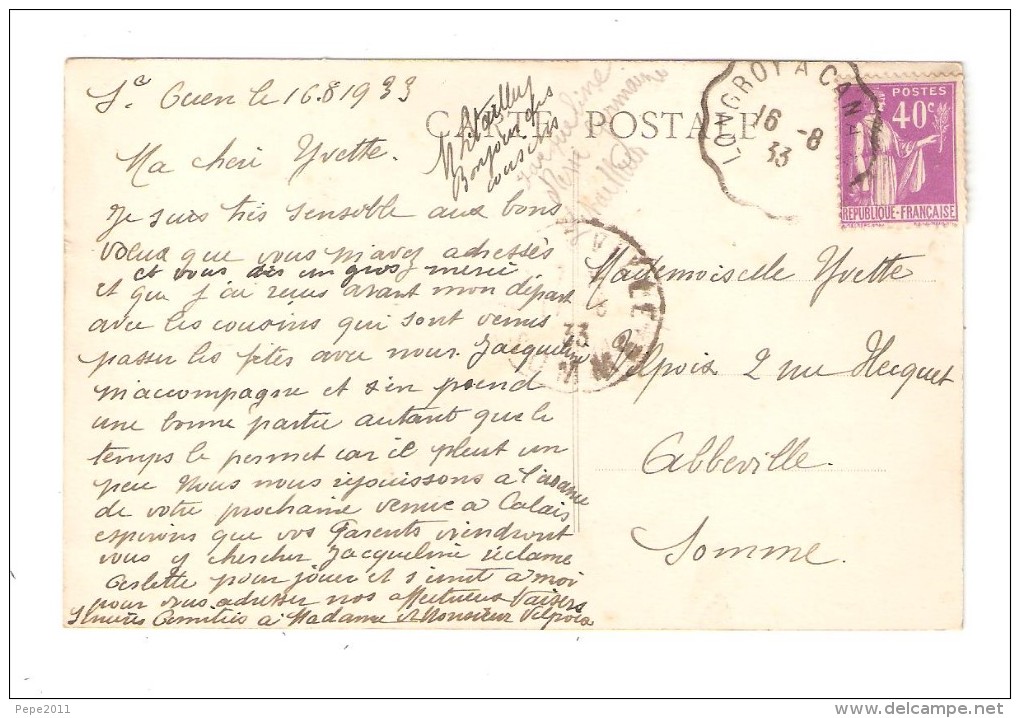 St Ouen le 16.8.1933
Ma cheri Yvette.
Je suis très sensible aux bons
vœux que vous m'avez adressés
et vous dis un gros merci
et que j'ai reçus avant mon départ
avec les cousins qui sont venus
passer les fêtes avec nous. Jacqueline
m'accompagne et s'en prend
une bonne partie autant que le
temps le permet car il pleut un
peu Nous nous réjouissons à l'avance
de votre prochaine venue à Calais
espérons que vos Parents viendront
vous y chercher Jacqueline réclame
Arlette pour jouer et s'unit à moi
pour vous adresser nos affectueux baisers
Amitiés à Madame et Monsieur Vilpoix
Bonjour des
cousins
Jacqueline
CARTE POSTALE
LONGROY A CAN
16 -8
33
POSTES
40c
REPUBLIQUE-FRANÇAISE
33
Mademoiselle Yvette
Vilpoix 2 rue Hecquet
Abbeville.
Somme.
Pepe2011
www.delcampe.net